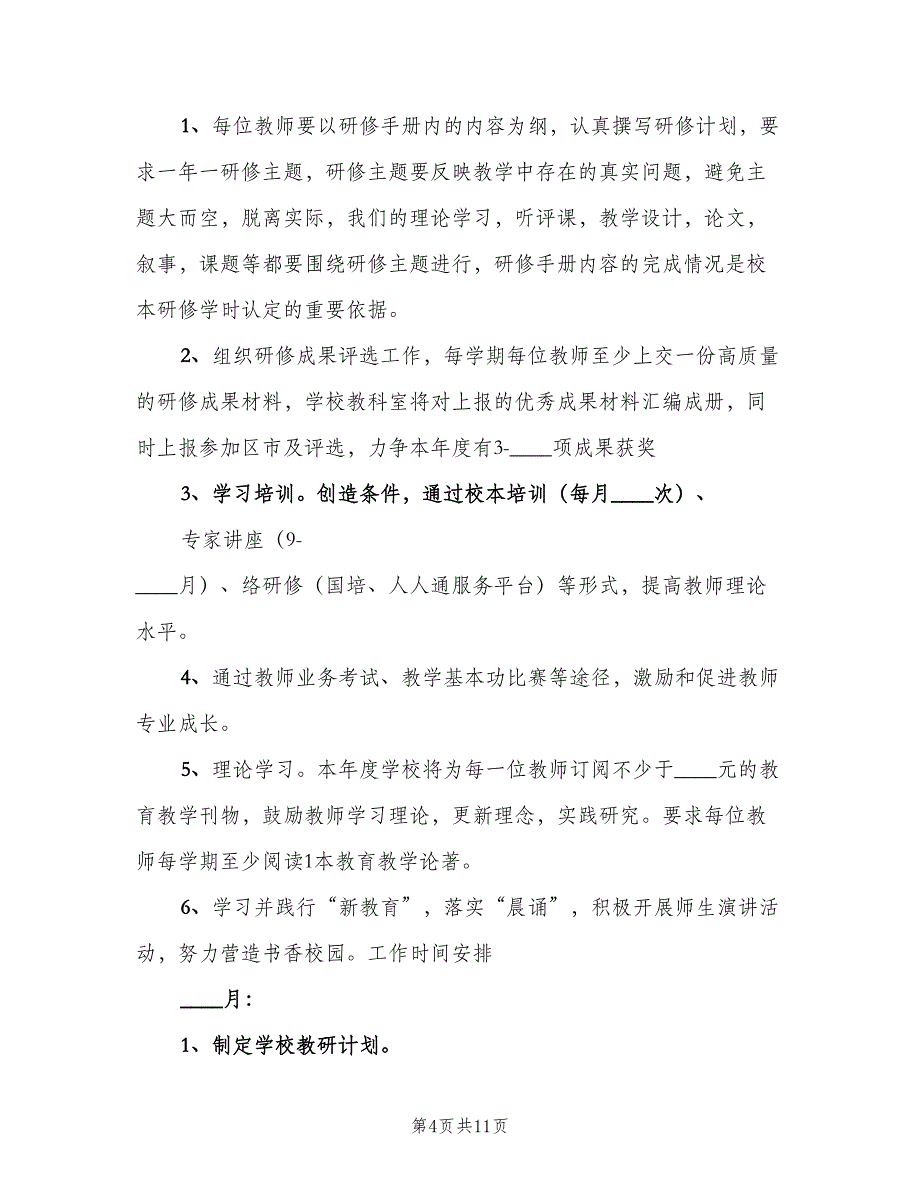 1、每位教师要以研修手册内的内容为纲，认真撰写研修计划，要
求一年一研修主题，研修主题要反映教学中存在的真实问题，避免主
题大而空，脱离实际，我们的理论学习，听评课，教学设计，论文，
叙事，课题等都要围绕研修主题进行，研修手册内容的完成情况是校
本研修学时认定的重要依据。
2、组织研修成果评选工作，每学期每位教师至少上交一份高质量
的研修成果材料，学校教科室将对上报的优秀成果材料汇编成册，同
时上报参加区市及评选，力争本年度有3-____项成果获奖
3、学习培训。创造条件，通过校本培训（每月____次）、
专家讲座（9-
____月）、络研修（国培、人人通服务平台）等形式，提高教师理论
水平。
4、通过教师业务考试、教学基本功比赛等途径，激励和促进教师
专业成长。
5、理论学习。本年度学校将为每一位教师订阅不少于____元的教
育教学刊物，鼓励教师学习理论，更新理念，实践研究。要求每位教
师每学期至少阅读1本教育教学论著。
6、学习并践行“新教育”，落实“晨诵”，积极开展师生演讲活
动，努力营造书香校园。工作时间安排
____月：
1、制定学校教研计划。
第4页共11页